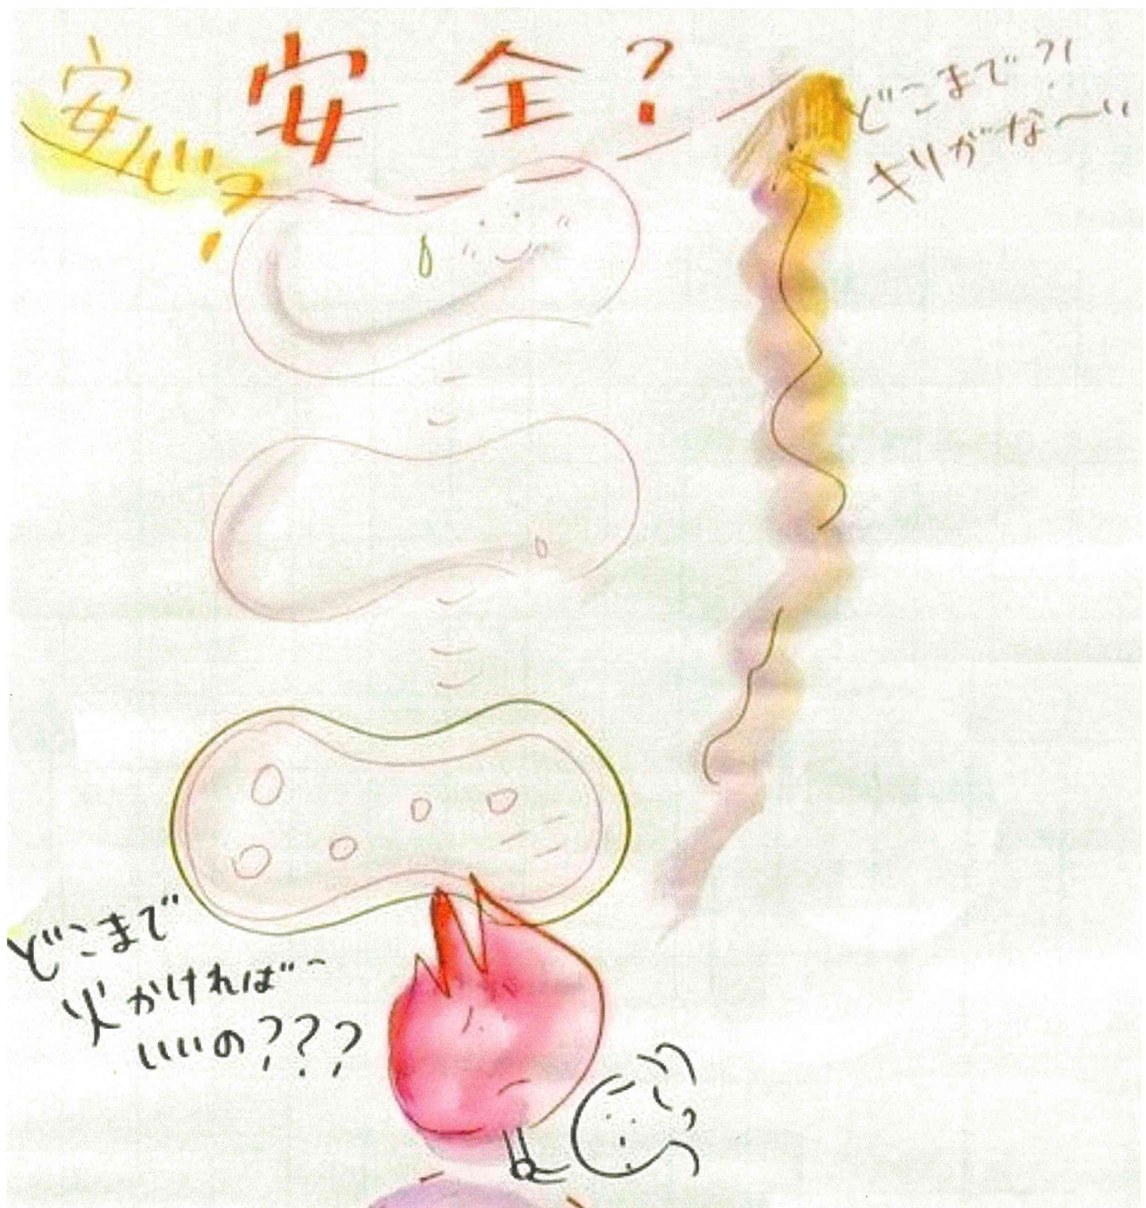 安心？
安全？
どこまで?!
キリがな〜い
どこまで
火かければ〜
いいの???